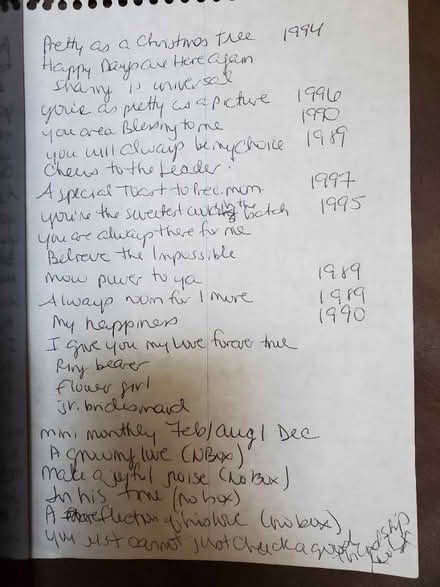 Pretty as a Christmas Tree 1994
Happy Days are Here Again
Sharing is universal
you're as pretty as a picture 1996
you are a Blessing to me 1990
you will always be my choice 1989
Cheers to the Leader
A special Toast to Prec. mom 1997
you're the sweetest in the batch 1995
you are always there for me
Believe the Impossible
mow power to ya 1989
Always room for 1 more 1989
My happiness 1990
I give you my love forever true
Ring bearer
Flower girl
jr. bridesmaid
mini monthly Feb/Aug/Dec
A growing love (NBox)
Make a joyful noise (no Box)
In his time (no box)
A reflection of his love (no box)
you just cannot just chuck a good friendship